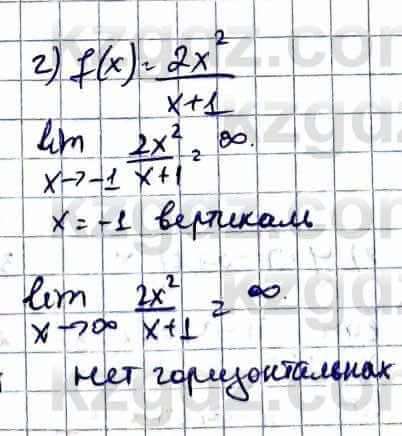 г) f(x) = 2x²/x+1
lim x→-1 2x²/x+1 = ∞.
x = -1 вертикаль
lim x→∞ 2x²/x+1 = ∞.
нет горизонтальная